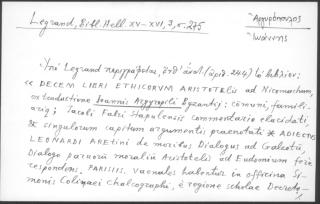 Legrand, Bibl. Hell XV-XVI, 3, σ. 275
Ἀργυρόπουλος
Ἰωάννης
Ὑπὸ Legrand περιγράφεται, ὑπ' ἀριθ. 244) τὸ βιβλίον:
« DECEM LIBRI ETHICORUM ARISTOTELIS ad Nicomachum,
ex traductione Joannis Argyropili Byzantij: cōmuni, famili-
ariq; Jacobi Fabri Stapulensis commentario elucidati
& singulorum capitum argumentis praenotati * ADIECTUS
LEONARDI ARETINI de moribus Dialogus ad Galeotū,
Dialogo parvorū moraliū Aristotelis ad Eudemium fere
respondens. PARISIIS. Vaenales habentur in officina Si-
monis Colinaei chalcographi, è regione scholae Decreto-